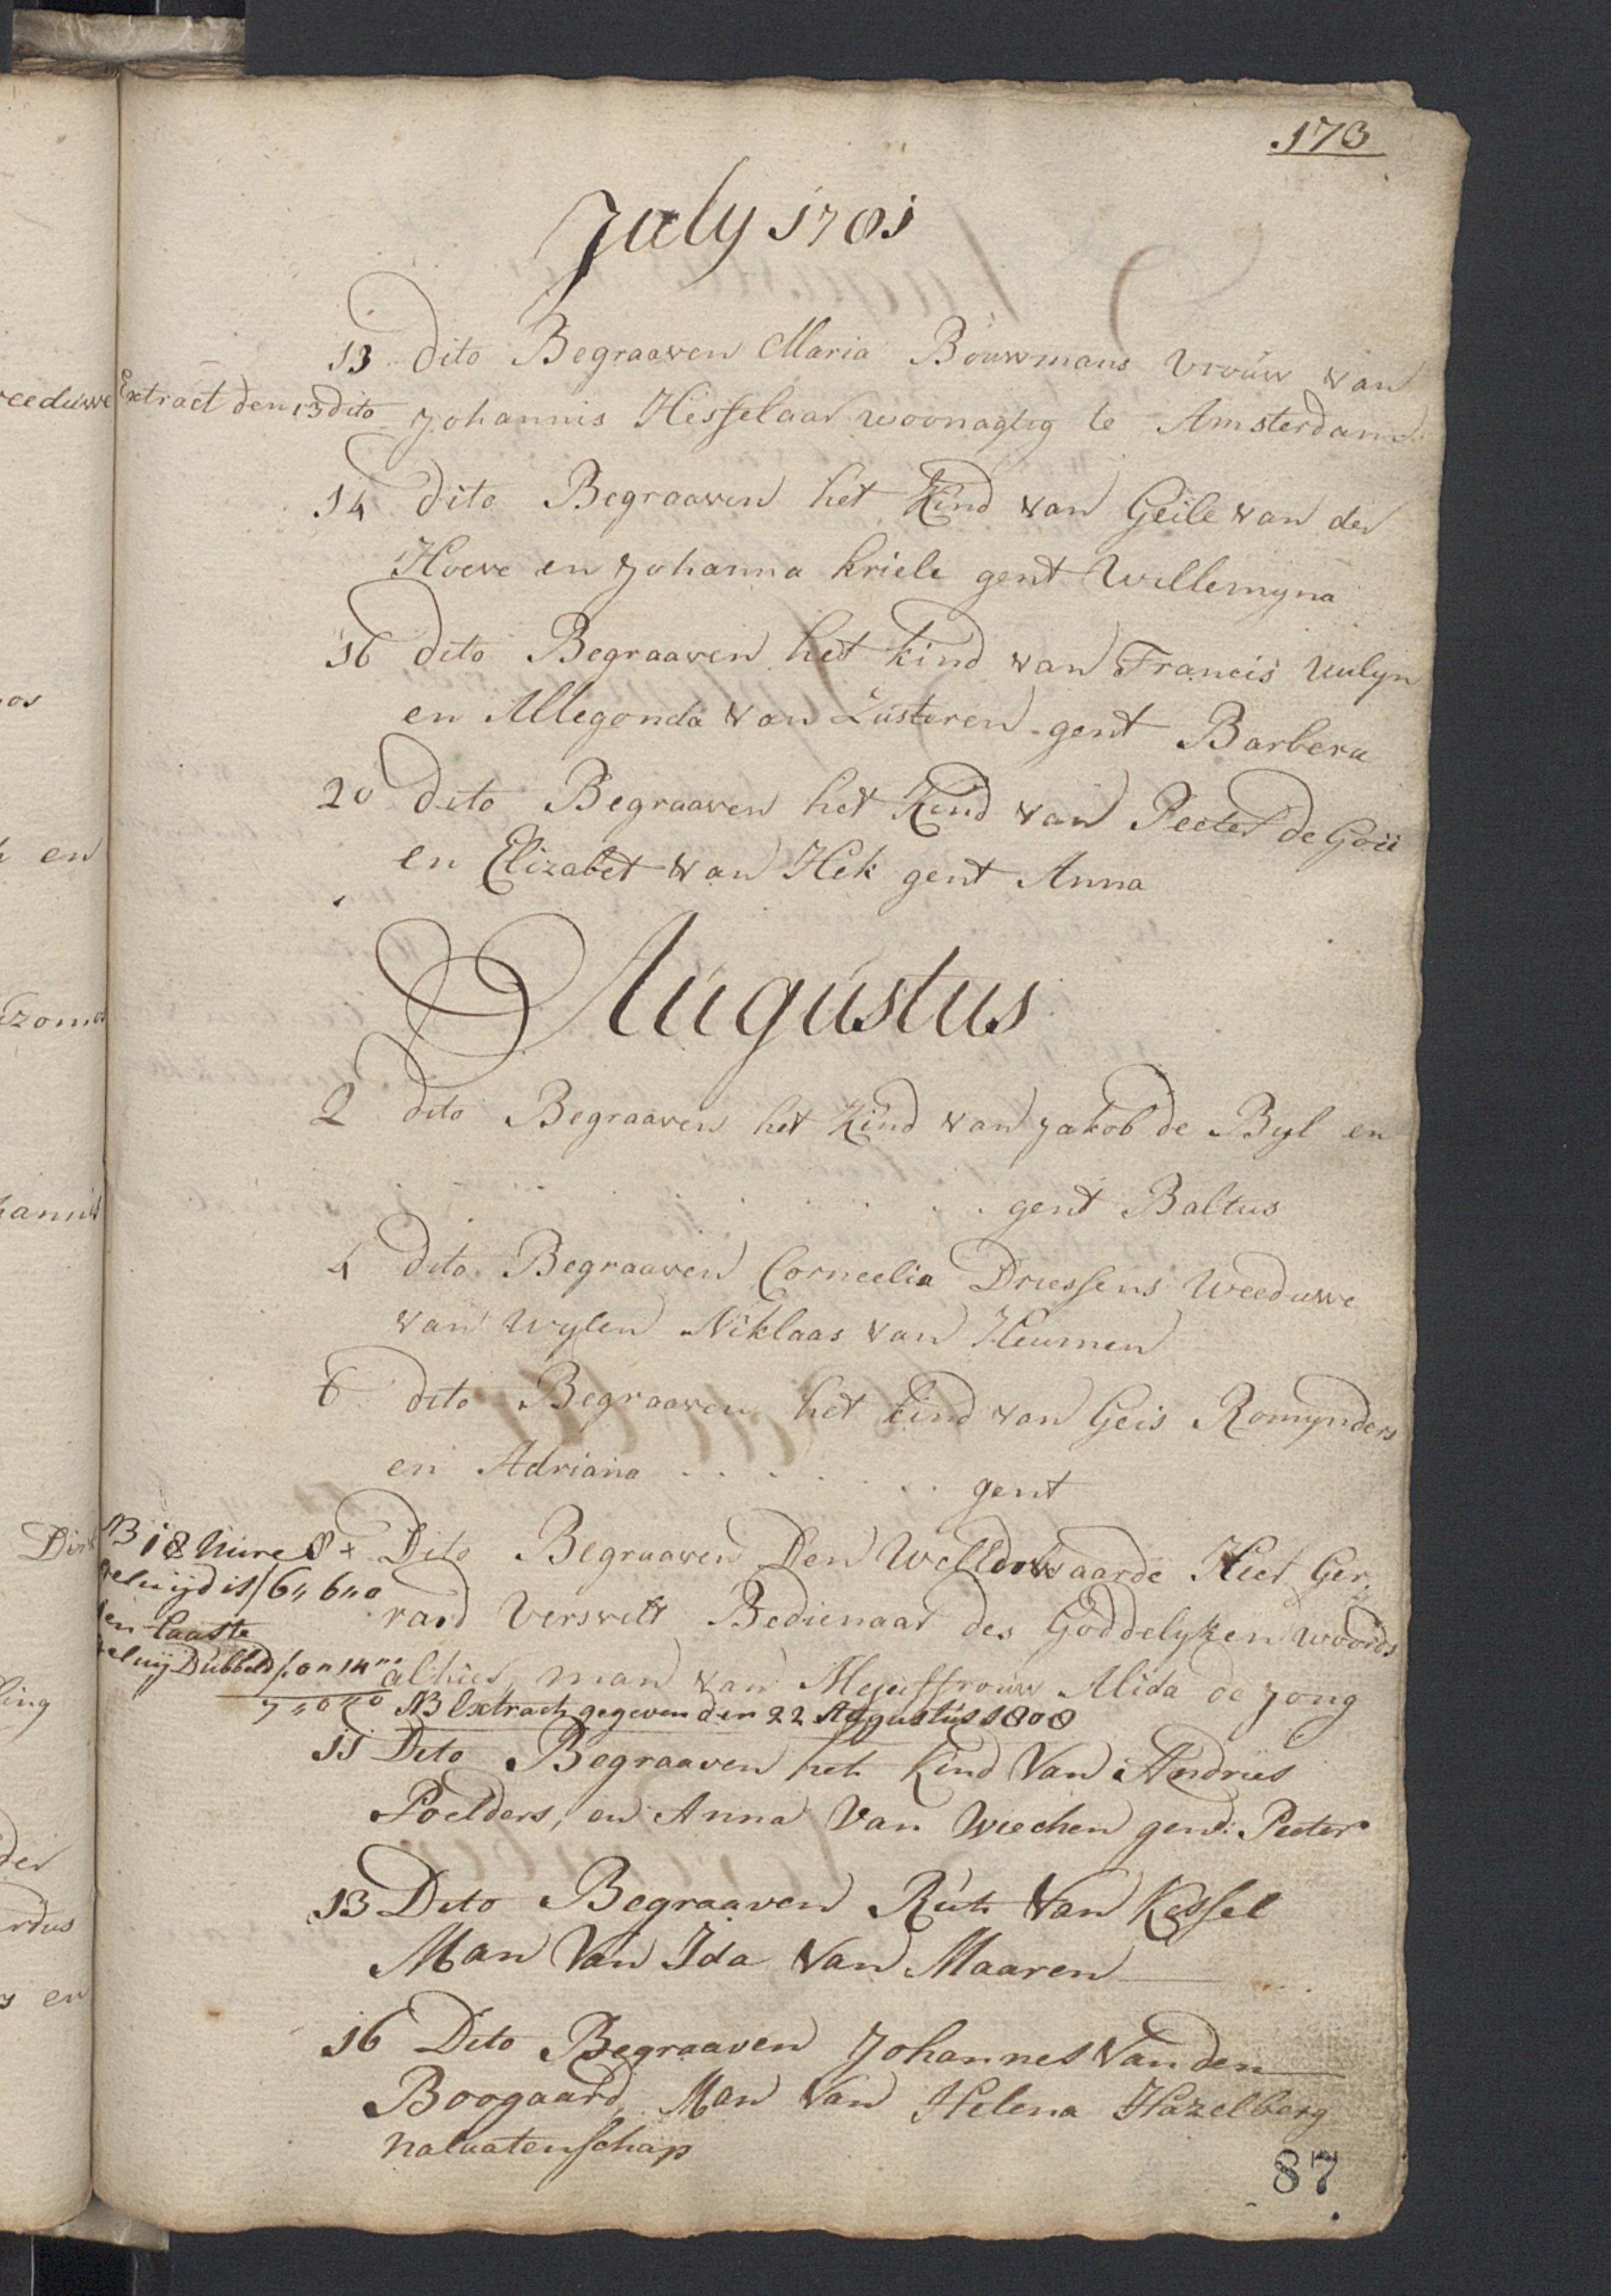 173
July 1781
13 dito Begraaven Maria Bouwmans vrouw van
Extract den 13 dito Johannis Hesselaar woonagtig te Amsterdam
14 dito Begraaven het Kind van Geile van der
Hoeve en Johanna Kriele gent Willemyna
16 dito Begraaven het kind van Francis Uulyn
en Allegonda van Zusteren gent Barbera
20 dito Begraaven het Kind van Peeter de Goii
en Elizabet van Hek gent Anna
Augustus
2 dito Begraaven het Kind van Jakob de Byl en
. . . . . . gent Baltus
4 dito Begraaven Corneelia Driessens Weeduwe
van wylen Niklaas van Heumen
6 dito Begraaven het kind van Geis Romynders
en Adriana . . . . . . gent
NB 18 Uure
geluijd is f 6,, 6,, 0
den laaste
geluij Dubbeld f. 0 ,, 14 ,,
7 ,, 0 ,, 0
8 + Dito Begraaven Den Welleerwaarde Heer Ger,
rard Verswelt Bedienaar des Goddelyken woords
alhier, man van Mejuffrouw Alida de Jong
NB Extract gegeven den 22 Augustus 1808
11 Dito Begraaven het Kind Van Andries
Poelders, en Anna Van Wiechen gend: Peeter
13 Dito Begraaven Rut Van Kessel
Man Van Ida Van Maaren
16 Dito Begraaven Johannes Van den
Boogaard, Man Van Helena Hazelberg
nalaatenschap
87
eeduwe
os
en
zom
hannis
Dirk
ling
der
rdus
s en